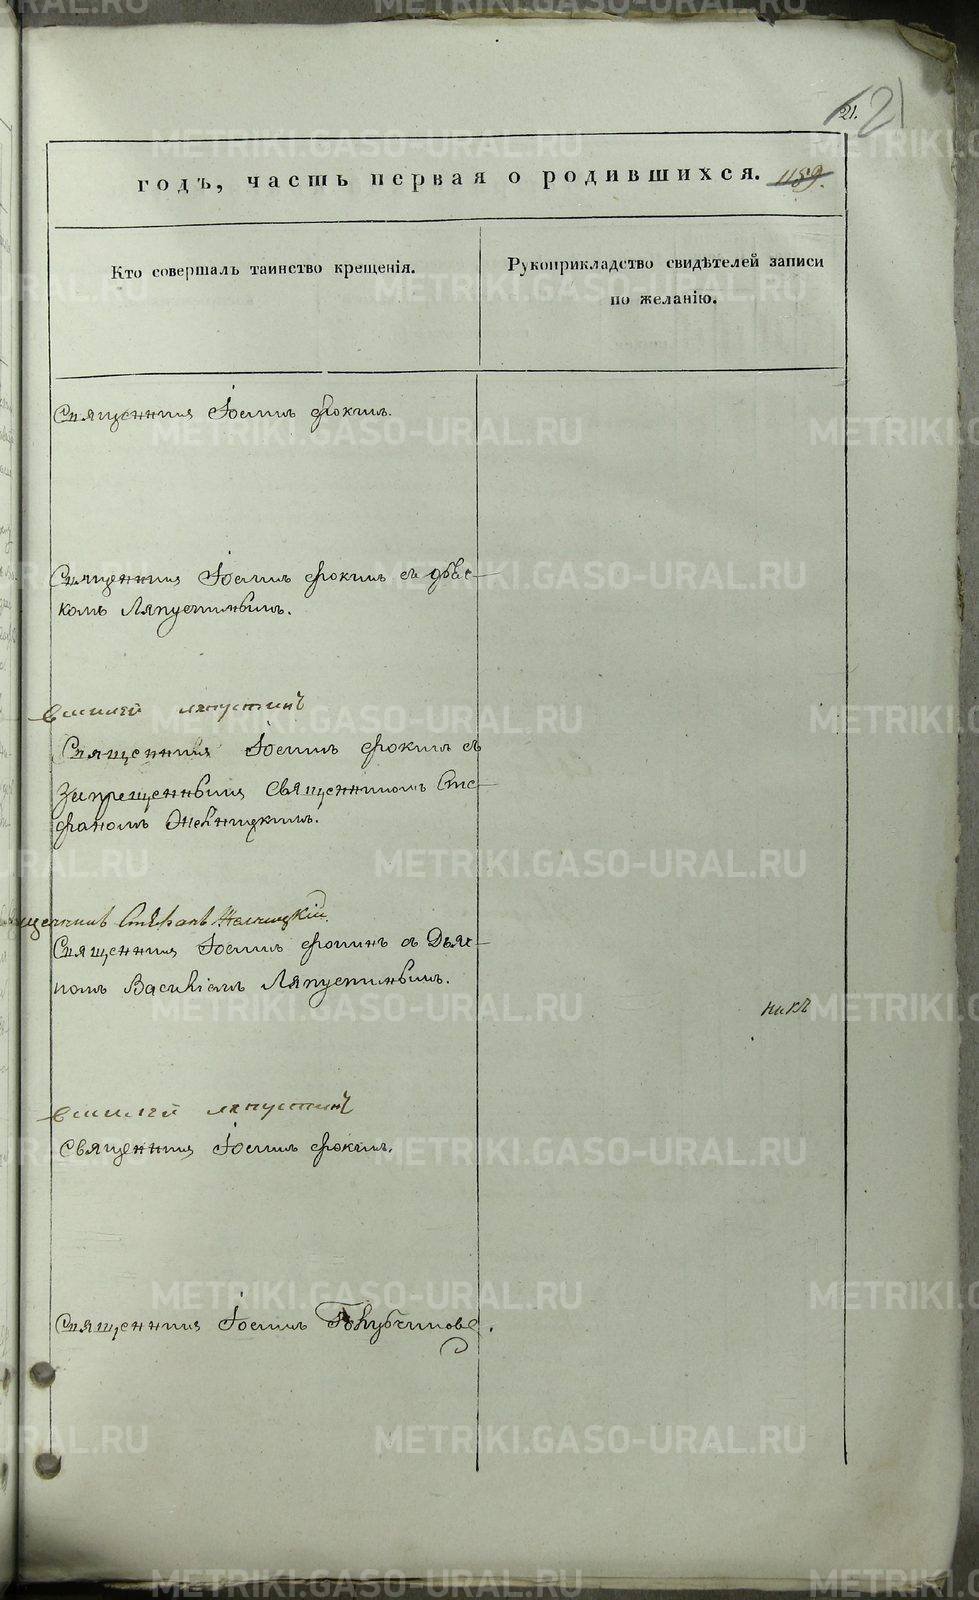 21.
21
годъ, часть первая о родившихся. 1159.
Кто совершалъ таинство крещенія.
Рукоприкладство свидѣтелей записи
по желанію.
Священникъ Іоаннъ Фокинъ.
Священникъ Іоаннъ Фокинъ съ дьяч-
комъ Ляпустинымъ.
Василей Ляпустинъ
Священникъ Іоаннъ Фокинъ съ
Запрещеннымъ Священникомъ Сте-
фаномъ
Стефанъ
Священникъ Іоаннъ Фокинъ съ Дьяч-
комъ Василіемъ Ляпустинымъ.
никъ
Василей Ляпустинъ
Священникъ Іоаннъ Фокинъ.
Священникъ Іоаннъ
METRIKI.GASO-URAL.RU